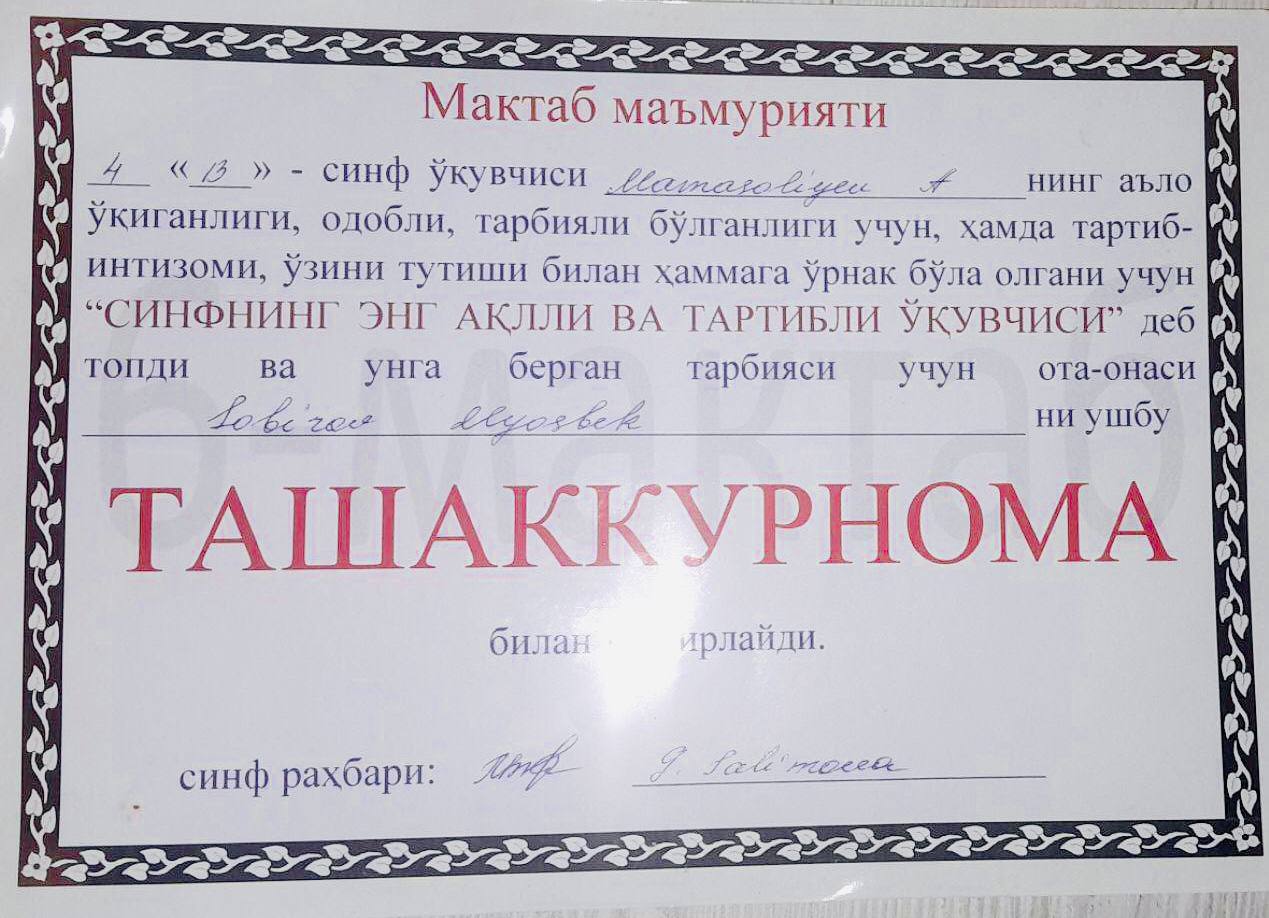 Мактаб маъмурияти
4 «B» - синф ўқувчиси Mamasoliyev A нинг аъло
ўқиганлиги, одобли, тарбияли бўлганлиги учун, ҳамда тартиб-
интизоми, ўзини тутиши билан ҳаммага ўрнак бўла олгани учун
“СИНФНИНГ ЭНГ АҚЛЛИ ВА ТАРТИБЛИ ЎҚУВЧИСИ” деб
топди ва унга берган тарбияси учун ота-онаси
Ilyosbek ни ушбу
6-мактаб
ТАШАККУРНОМА
билан ирлайди.
синф раҳбари: G. Salimova